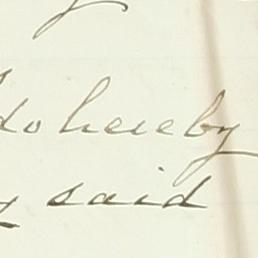 do hereby
said